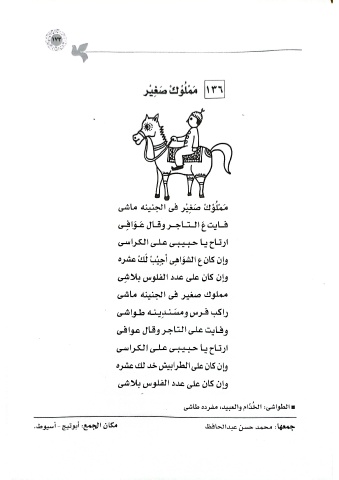 ١٣٦ مَمْلُوكْ صَغِيْر
مَمْلُوكْ صَغِيْر فى الجنينه ماشى
فـايـت عَ الـتـاجـر وقـال عَـوَافِـى
ارتاح يـا حـبـيـبـى عـلـى الكراسى
وإن كان عَ الشواهِى أجِيْبْ لَكْ عشره
وإن كان على عدد الفلوس بلاشى
مملوك صغير فى الجنينه ماشى
راكب فرس ومسَنديِنه طواشى
وفايت على التاجر وقال عوافى
ارتاح يا حبيبى على الكراسى
وإن كان على الطرابيش خد لك عشره
وإن كان على عدد الفلوس بلاشى
■ الطواشى: الخُدام والعبيد، مفرده طاشى
جمعها: محمد حسن عبدالحافظ
مكان الجمع: أبوتيج - أسيوط.